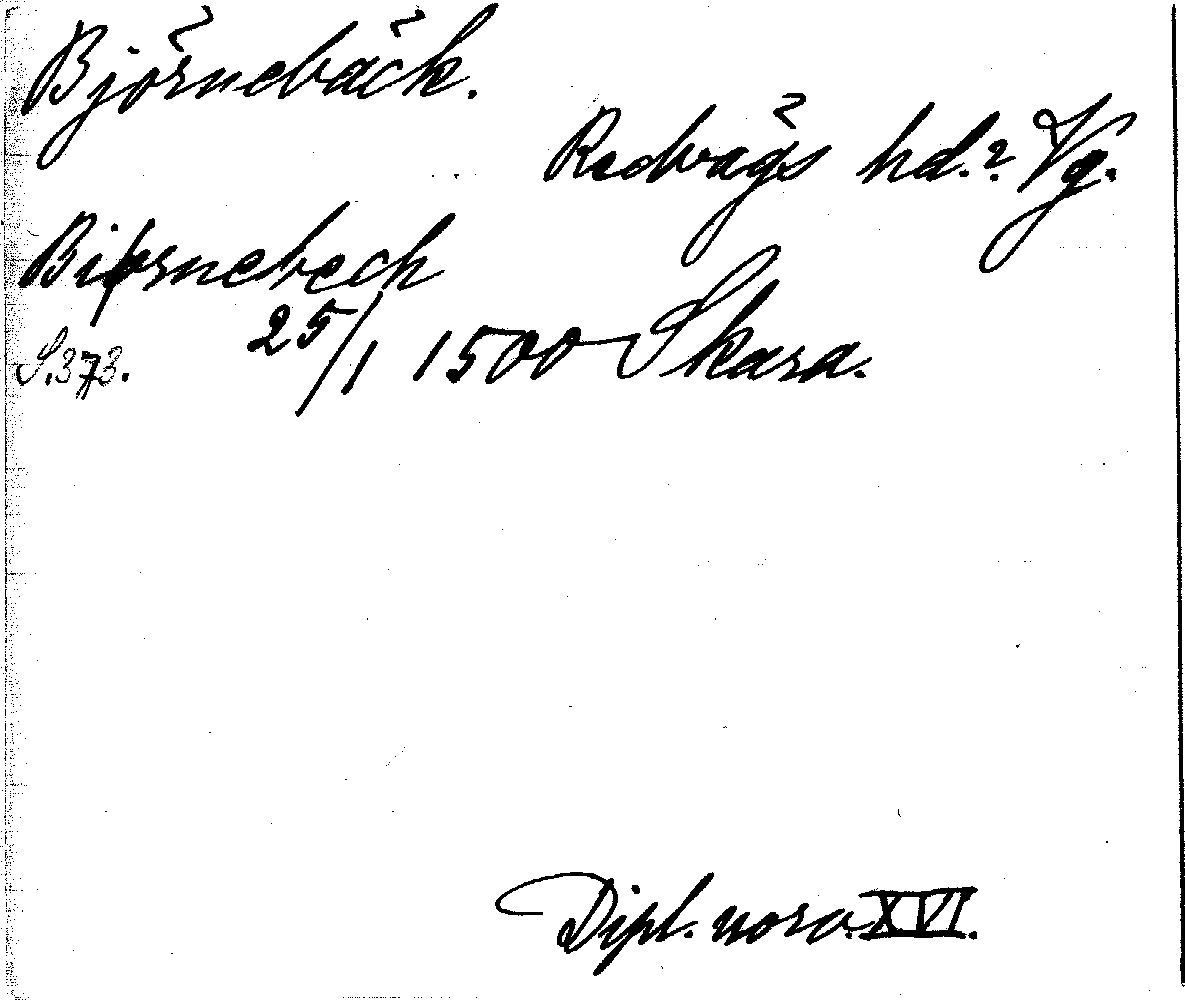 Björnebäck.
Redvägs hd.? Vg.
Biørnebech
S.373. 25/1 1500 Skara.
Dipl. norv. XVI.